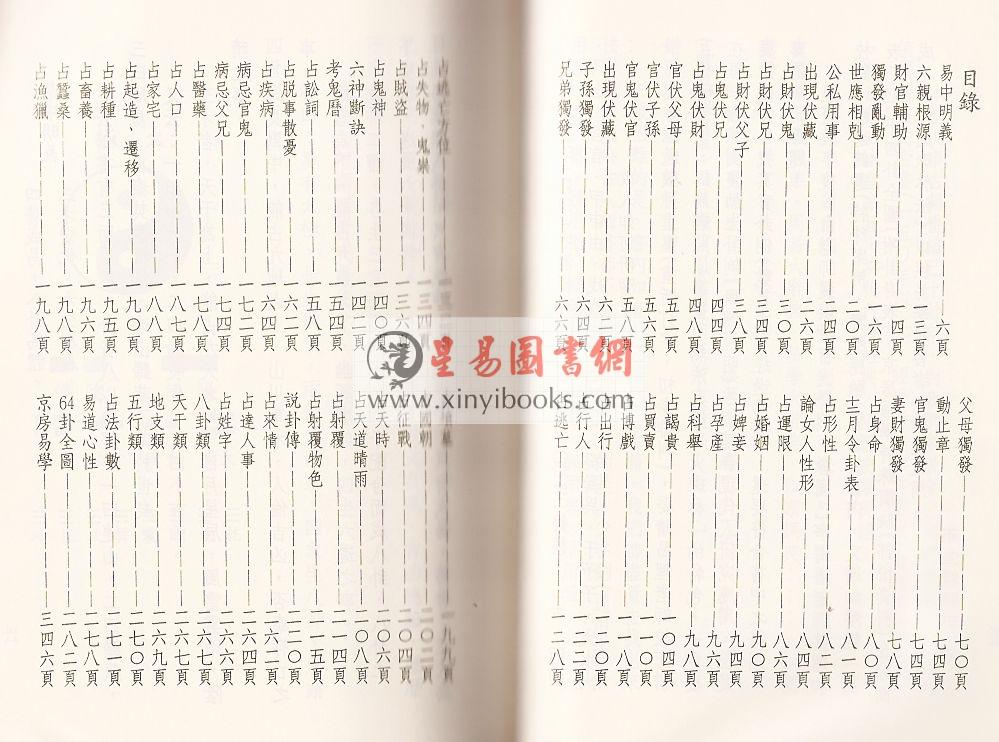 目錄
易中明義 六頁
六親根源 一三頁
財官輔助 一四頁
獨發亂動 一六頁
世應相剋 二〇頁
公私用事 二四頁
出現伏藏 二六頁
占財伏鬼 三〇頁
占財伏兄 三四頁
占財伏父子 三八頁
占鬼伏兄 四四頁
占鬼伏財 四八頁
官伏父母 五二頁
官伏子孫 五六頁
官鬼伏官 五八頁
出現伏藏 六二頁
子孫獨發 六六頁
兄弟獨發 六六頁
父母獨發 七〇頁
動止章 七四頁
官鬼獨發 七四頁
妻財獨發 七八頁
占身命 八〇頁
十二月令卦表 八一頁
占形性 八二頁
論女人性形 八四頁
占運限 八八頁
占婚姻 九〇頁
占婢妾 九四頁
占孕產 九六頁
占科舉 九八頁
占謁貴 一〇四頁
占買賣 一一〇頁
占博戲 一一八頁
占出行 一二〇頁
占行人 一二二頁
逃亡 一二八頁
占逃亡方位
占失物、鬼祟 一三四頁
占賊盜 一三六頁
占鬼神 一四〇頁
六神斷訣 一四二頁
考鬼曆 一五四頁
占訟詞 一五八頁
占脫事散憂 一六二頁
占疾病 一六四頁
病忌官鬼 一七二頁
病忌父兄 一七四頁
占醫藥 一七八頁
占人口 一八七頁
占家宅 一八八頁
占起造、遷移 一九〇頁
占耕種 一九五頁
占畜養 一九六頁
占蠶桑 一九八頁
占漁獵 一九八頁
墳墓 一九九頁
國朝 二〇二頁
征戰 二〇四頁
天時 二〇六頁
占天道晴雨 二〇八頁
占射覆 二一四頁
占射覆物色 二一五頁
説卦傳 二二〇頁
占來情
占達人事 二六四頁
占姓字 二六六頁
八卦類 二六七頁
天干類 二六七頁
地支類 二六九頁
五行類 二七〇頁
占法卦數 二七一頁
易道心性 二七八頁
64卦全圖 二八二頁
京房易學 三四六頁
星易圖書網
www.xinyibooks.com